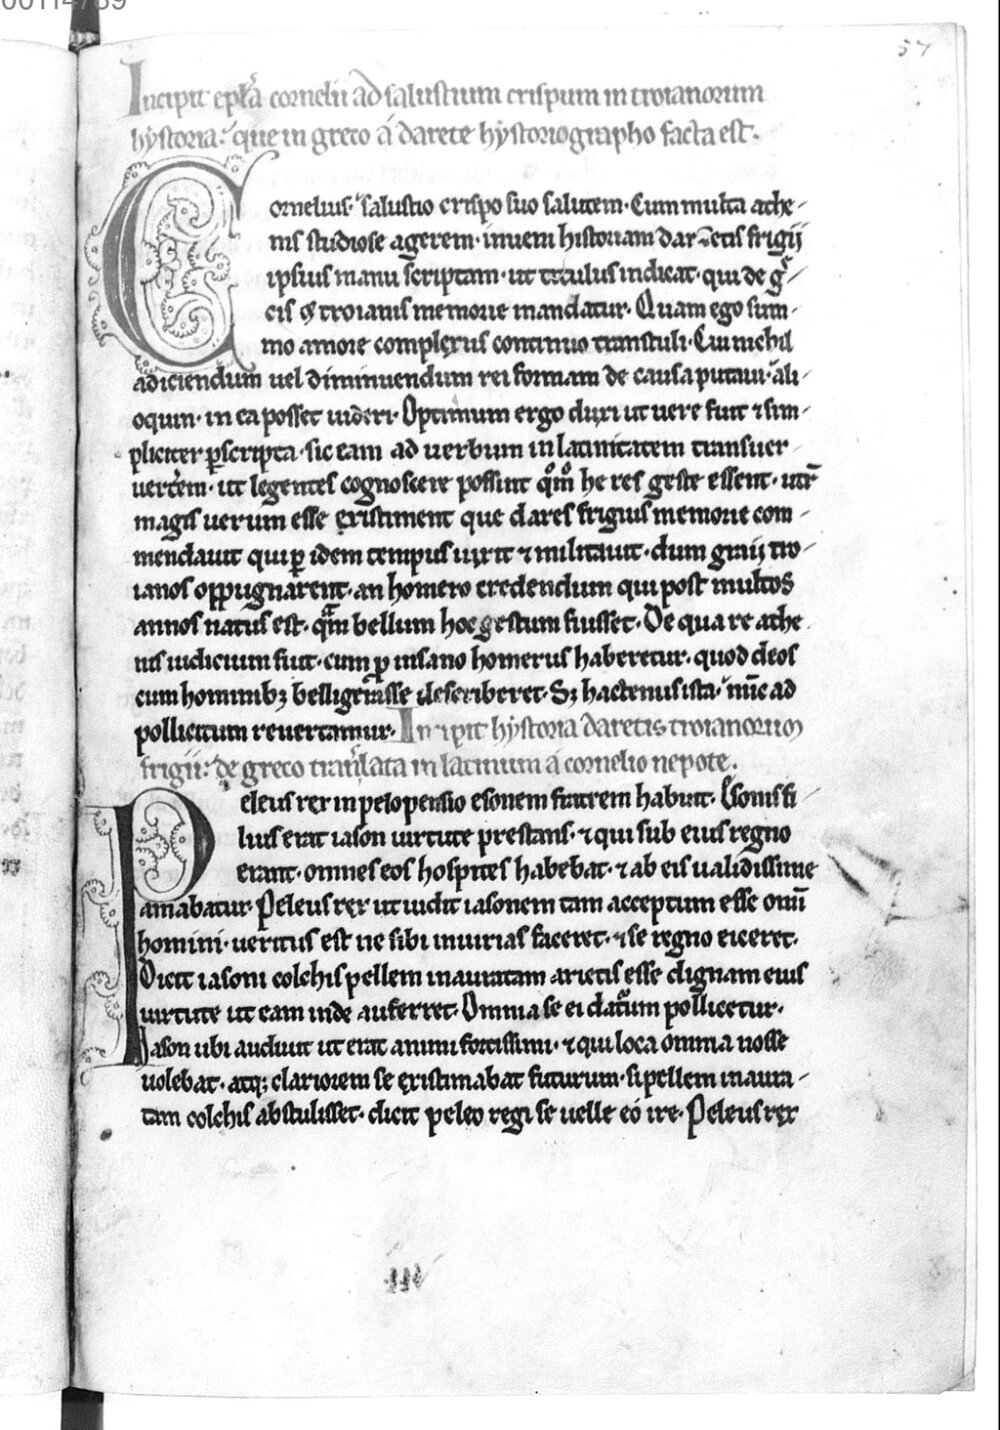 00114789
57
Incipit epl̅a cornelii ad salustium crispum in troianorum
hystoria. que in greco a darete hystoriographo facta est.
Cornelius. salustio crispo suo salutem. Cum multa athe-
nis studiose agerem. inueni historiam daretis frigij
ipsius manu scriptam. ut titulus indicat. qui de g̅-
cis ⁊ troianis memorie mandatur. Quam ego sum-
mo amore complexus continuo transtuli. Cui nichil
adiciendum uel diminuendum rei formam de causa putaui. ali-
oquin. in ea posset uideri. Optimum ergo duxi ut uere fuit ⁊ sim-
pliciter ꝑscripta. sic eam ad uerbum in latinitatem transuer-
uertem. ut legentes cognoscere possint qͦmͦ he res geste essent. utr̅
magis uerum esse existiment que dares frigius memorie com-
mendauit qui ꝑ idem tempus uixit ⁊ militauit. dum graij tro-
ianos oppugnarent. an homero credendum qui post multos
annos natus est. qua̅m bellum hoc gestum fuisset. De qua re athe
nis iudicium fuit. cum ꝓ insano homerus haberetur. quod deos
cum hominibꝫ belligerasse describeret. Sꝫ hactenus ista. nu̅c ad
pollicitum reuertamur. Incipit hystoria daretis troianorum
frigii. de greco translata in latinum a cornelio nepote.
Peleus rex in pelopensio esonem fratrem habuit. Esonis fi-
lius erat iason uirtute prestans. ⁊ qui sub eius regno
erant. omnes eos hospites habebat. ⁊ ab eis ualidissime
amabatur. Peleus rex ut uidit iasonem tam acceptum esse omi̅
homini. ueritus est ne sibi iniurias faceret. ⁊ se regno eiceret.
Dicit iasoni colchis pellem inauratam arietis esse dignam eius
uirtute ut eam inde auferret. Omnia se ei daturum pollicetur.
Iason ubi audiuit ut erat animi fortissimi. ⁊ qui loca omnia nosse
uolebat. atqꝫ clariorem se existimabat futurum. si pellem inaura-
tam colchis abstulisset. dicit peleo regi se uelle eo ire. Peleus rex